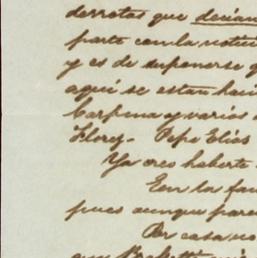 derrotas que decían
parte con la notici
y es de suponerse q
aquí se están haci
Carpena y varios
Flores- Pepe Elias
Ya creo haberte
Con la fam
pues aunque pare
Por casa no
que